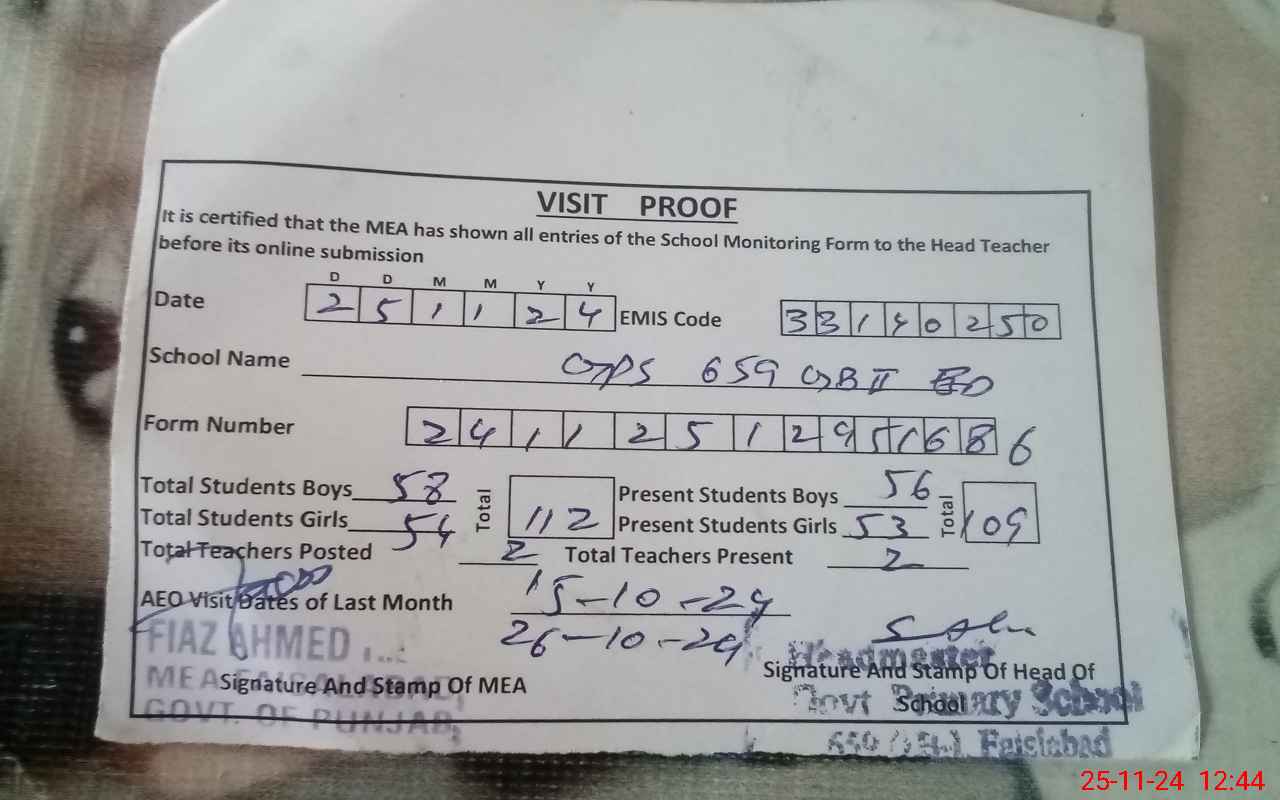 VISIT PROOF
It is certified that the MEA has shown all entries of the School Monitoring Form to the Head Teacher
before its online submission
D D M M Y Y
Date 2 5 1 1 2 4 EMIS Code 3 3 1 4 0 2 5 0
School Name GPS 659 GB II
Form Number 2 4 1 1 2 5 1 2 9 5 1 6 8 6
Total Students Boys 58 Total 112 Present Students Boys 56 Total 109
Total Students Girls 54 Present Students Girls 53
Total Teachers Posted 2 Total Teachers Present 2
AEO Visit Dates of Last Month 15-10-24
26-10-24
FIAZ AHMED
MEA FAISALABAD,
GOVT. OF PUNJAB,
Signature And Stamp Of MEA
Signature And Stamp Of Head Of
School
Headmaster
Govt Primary School
Faislabad
25-11-24 12:44